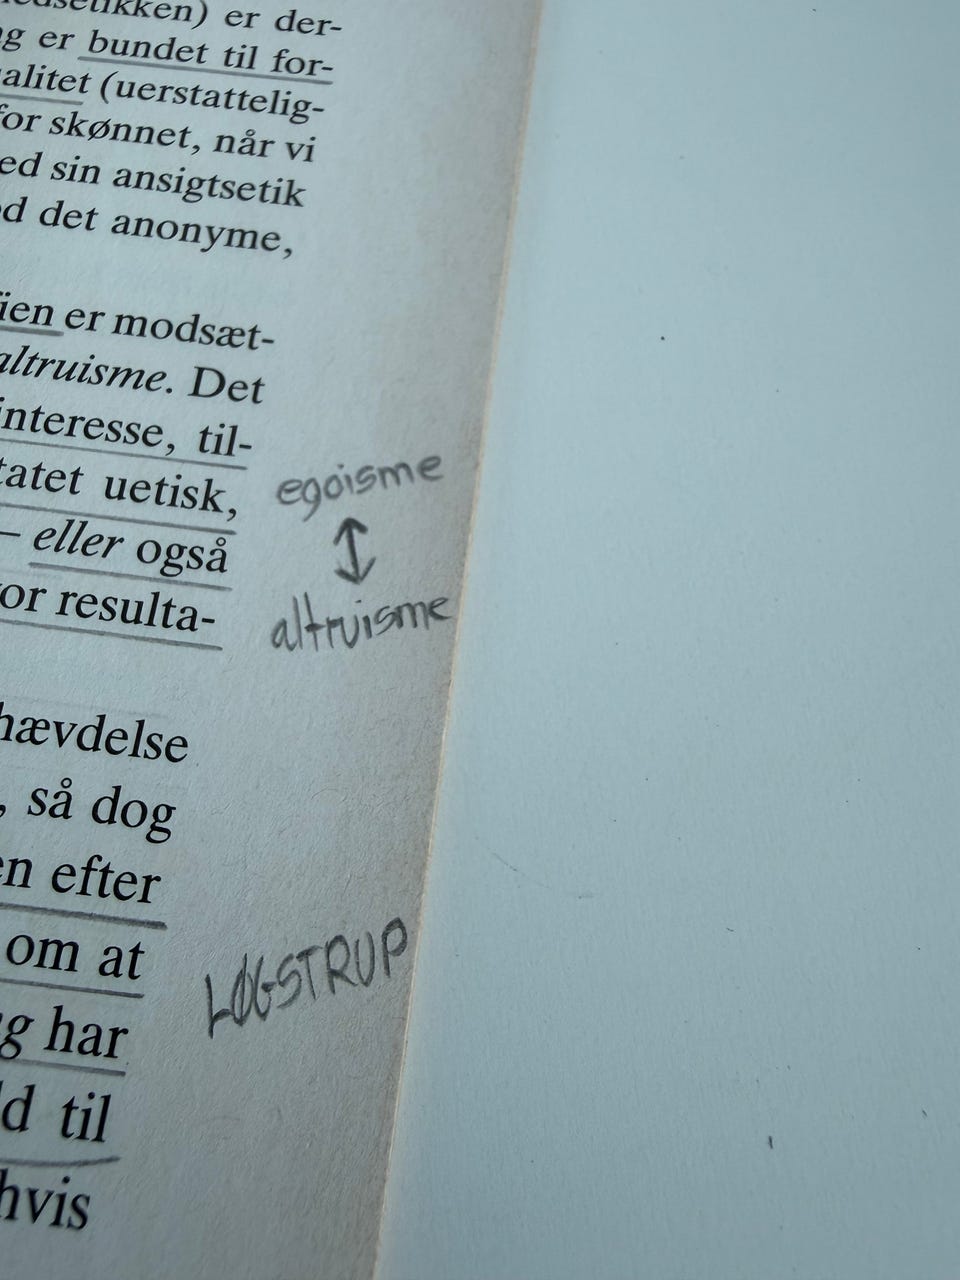 er der-
er bundet til for-
(uerstattelig-
for skønnet, når vi
sin ansigtsetik
det anonyme,
er modsæt-
altruisme. Det
interesse, til-
uetisk,
egoisme
– eller også
resulta-
altruisme
så dog
efter
om at
LØGSTRUP
har
til
hvis